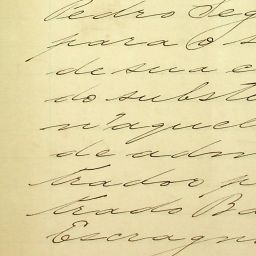 Pedro Seg
para o s
de sua e
do substi
n'aquel
de adm
trados p
trado Ba
Escragn